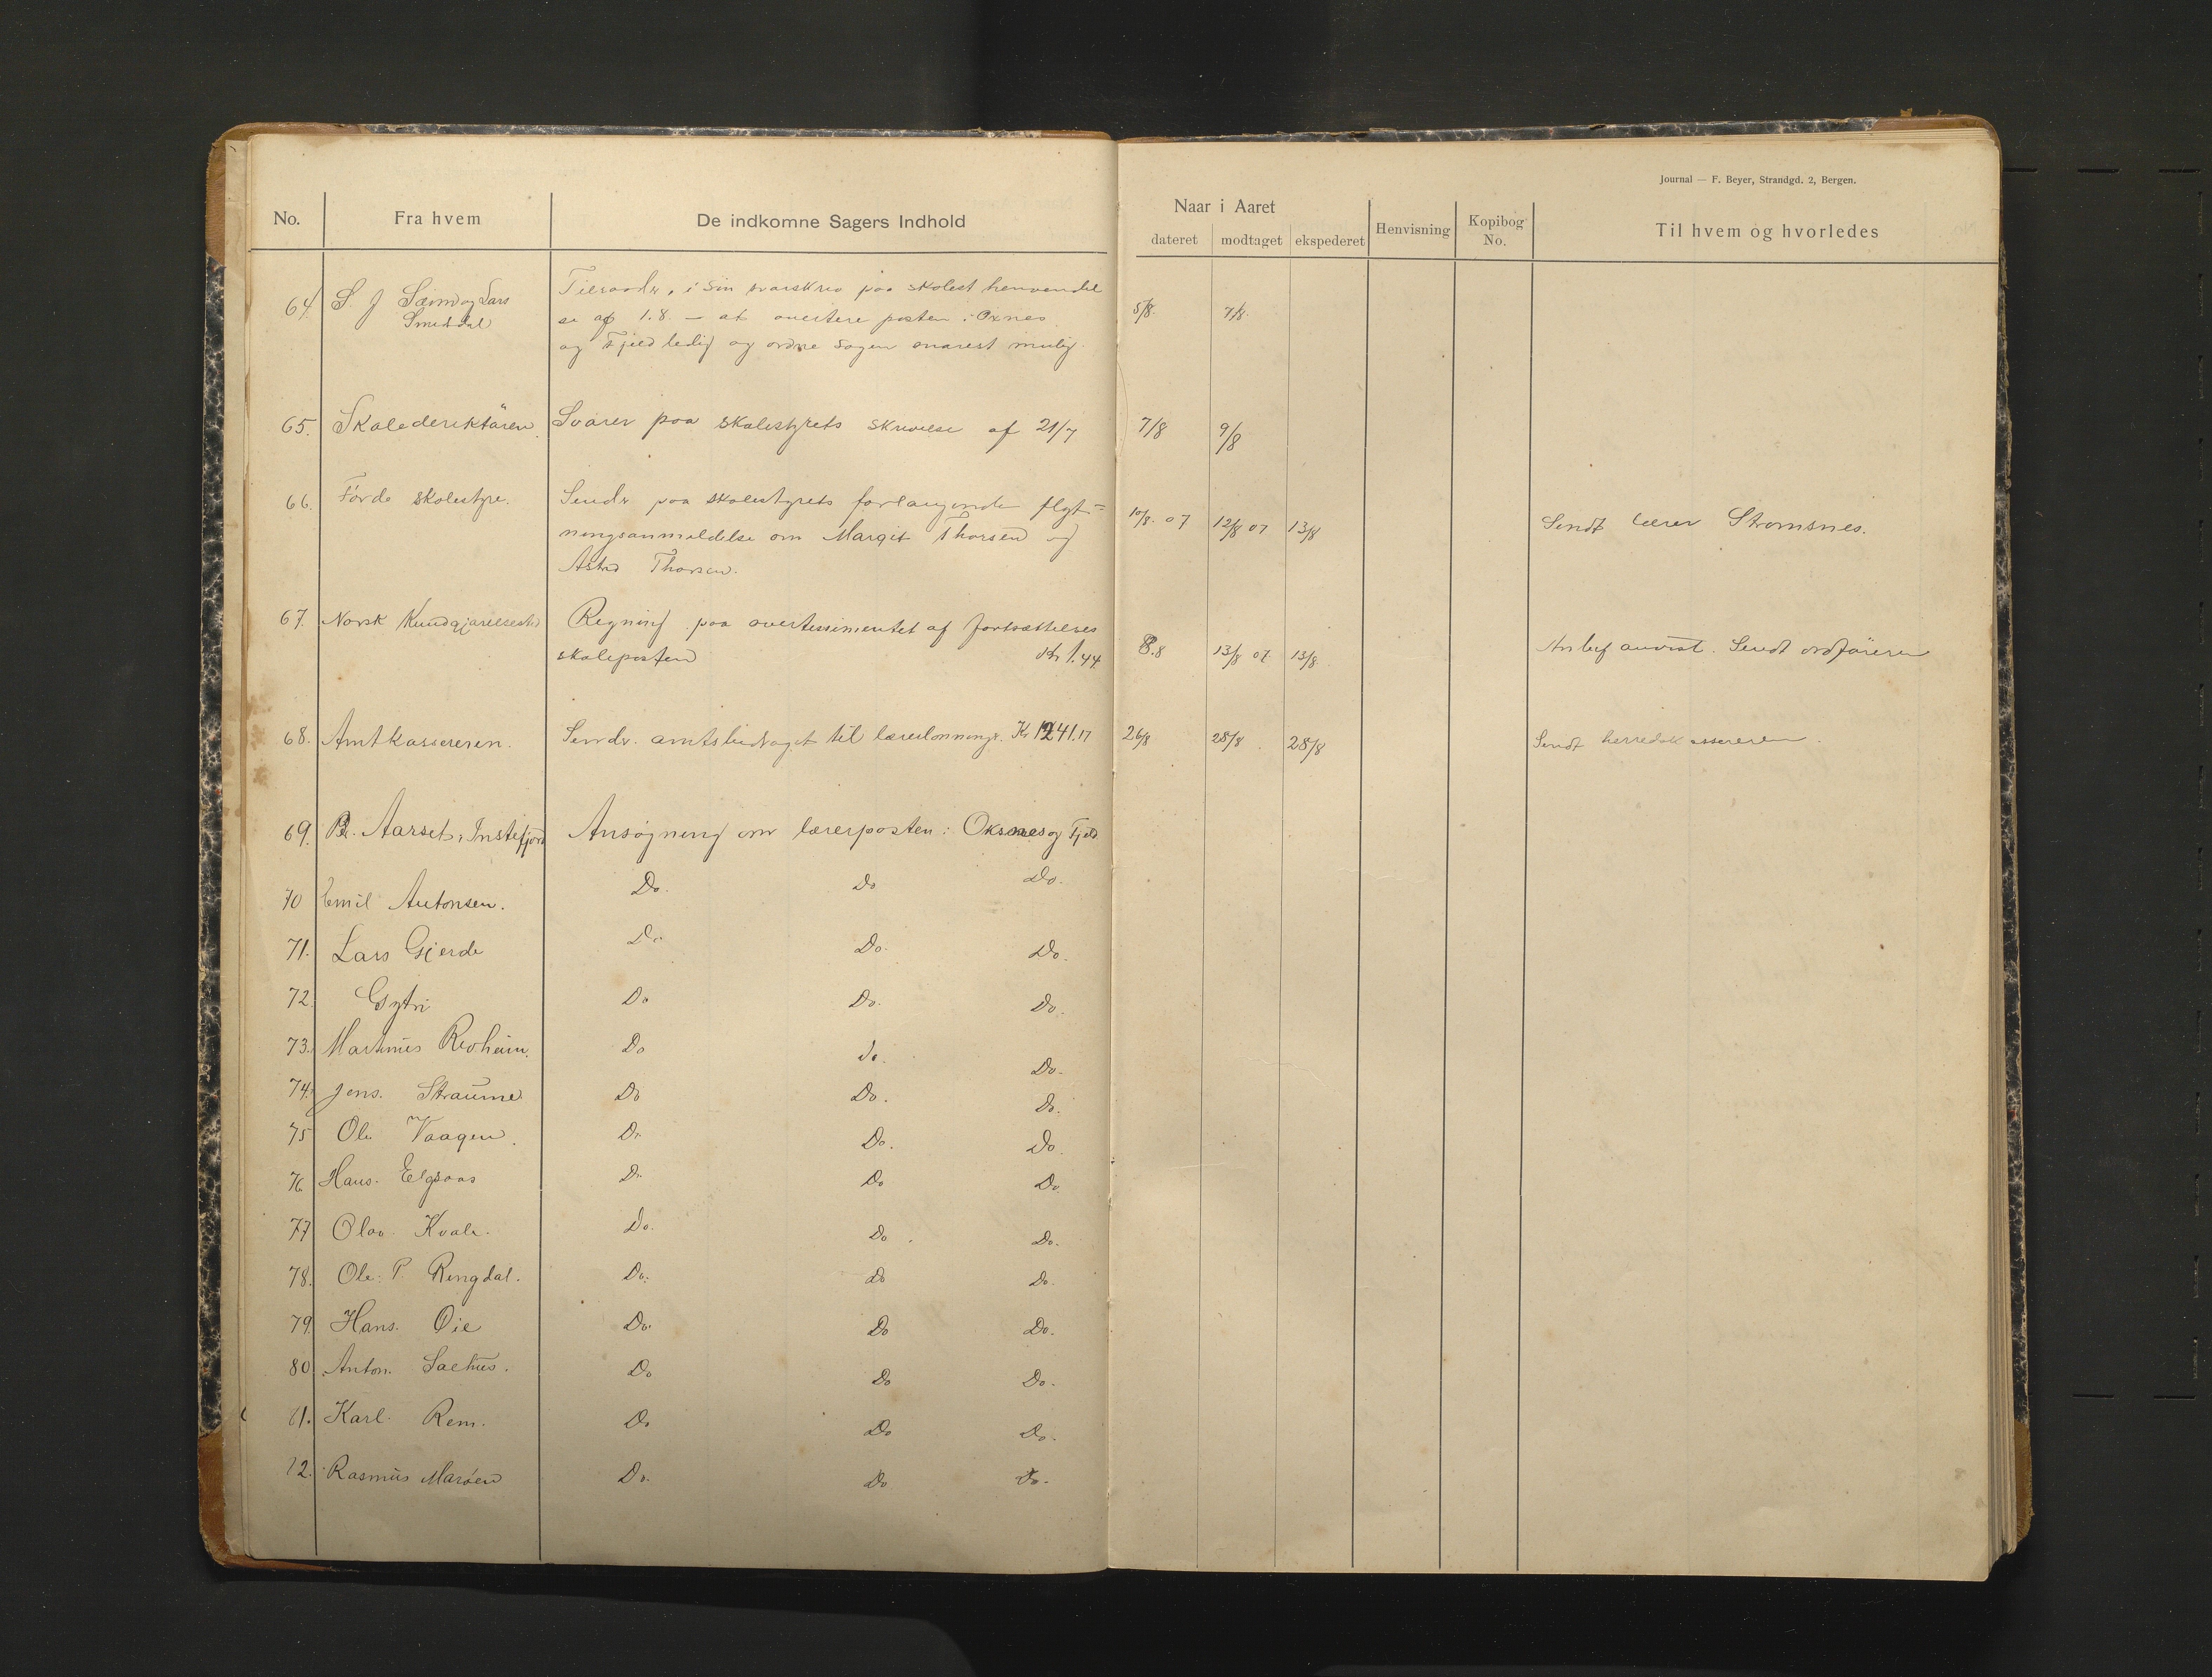 Journal — F. Beyer, Strandgd. 2, Bergen.
No. Fra hvem De indkomne Sagers Indhold Naar i Aaret Henvisning Kopibog No. Til hvem og hvorledes
dateret modtaget ekspederet
64. S J Seim og Lars Smeddal
Tilraader, i sin svarskriv paa skolest henvendel
se af 1.8. — at avertere posten i Oxnes
og Fjeld ledig og ordne sagen snarest mulig.
5/8. 7/8.
65. Skoledirektören. Svarer paa skolestyrets skrivelse af 21/7 7/8 9/8
66. Förde skolestyre. Sender paa skolestyrets forlangende flyt=
ningsanmeldelse om Margit Thorsen og
Astrid Thorsen.
10/8. 07 12/8 07 13/8 Sendt lærer Stromsnes.
67. Norsk Kundgjørelsestid Regning paa avertissimentet af fortsættelses
skoleposten Kr 1.44
8.8 13/8 07. 13/8. Anbef anvist. Sendt ordføreren
68. Amtkassereren. Sender amtsbidraget til lærerlønninge. Kr 1241.17 26/8 28/8. 28/8 Sendt herredskassereren.
69. P. Aarset, Instefjord Ansøgning om lærerposten i Oksenes og Fjeld
70 Emil Antonsen. Do. Do Do.
71. Lars Gjerde Do Do. Do.
72. Gytri Do Do. Do.
73. Martinus Revheim. Do do. Do.
74. Jens. Straume Do Do. Do.
75 Ole Vaagen. Do Do. Do.
76. Hans. Elgsaas Do. Do Do
77 Olav. Kvale. Do. Do. Do.
78. Ole. P. Ringdal. Do. do Do.
79. Hans. Øie Do. Do Do.
80. Anton. Saethus. Do Do Do.
81. Karl. Rem. Do Do Do.
82. Rasmus Marøen Do. Do Do.